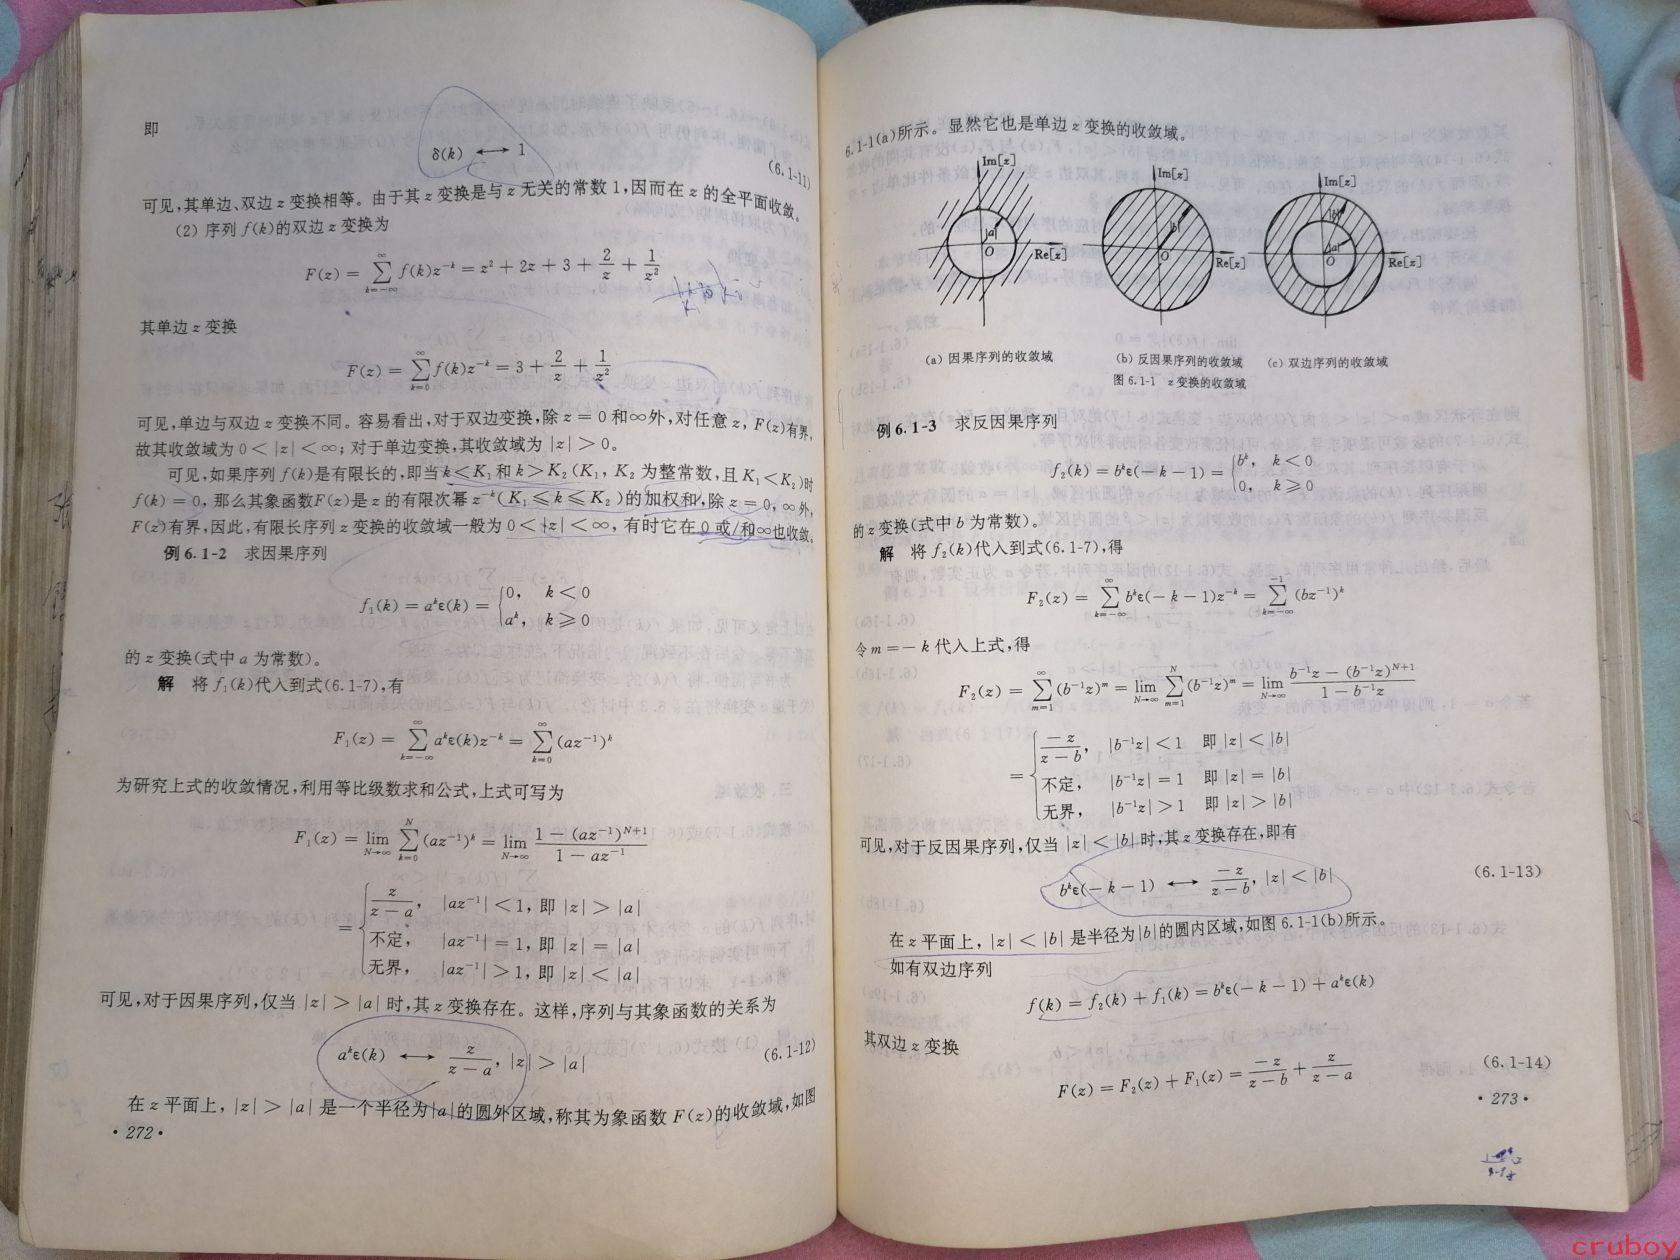 即
δ(k) ⟷ 1
(6.1-11)
可见,其单边、双边 z 变换相等。由于其 z 变换是与 z 无关的常数 1,因而在 z 的全平面收敛。
(2) 序列 f(k)的双边 z 变换为
F(z) = ∑_{k=-∞}^{∞} f(k)z^{-k} = z² + 2z + 3 + 2/z + 1/z²
其单边 z 变换
F(z) = ∑_{k=0}^{∞} f(k)z^{-k} = 3 + 2/z + 1/z²
可见,单边与双边 z 变换不同。容易看出,对于双边变换,除 z = 0 和∞外,对任意 z, F(z)有界,
故其收敛域为 0 < |z| < ∞; 对于单边变换,其收敛域为 |z| > 0。
可见,如果序列 f(k)是有限长的,即当 k≤K₁ 和 k>K₂(K₁, K₂ 为整常数,且 K₁<K₂)时
f(k) = 0, 那么其象函数F(z)是 z 的有限次幂 z^{-k}(K₁≤k≤K₂)的加权和,除 z = 0, ∞外,
F(z)有界,因此,有限长序列 z 变换的收敛域一般为 0<|z|<∞, 有时它在 0 或/和∞也收敛。
例 6.1-2 求因果序列
f₁(k) = aᵏε(k) = {0, k < 0
aᵏ, k ≥ 0
的 z 变换(式中 a 为常数)。
解 将 f₁(k)代入到式(6.1-7),有
F₁(z) = ∑_{k=-∞}^{∞} aᵏε(k)z^{-k} = ∑_{k=0}^{∞} (az^{-1})ᵏ
为研究上式的收敛情况,利用等比级数求和公式,上式可写为
F₁(z) = lim_{N→∞} ∑_{k=0}^{N} (az^{-1})ᵏ = lim_{N→∞} (1-(az^{-1})^{N+1})/(1-az^{-1})
= {z/(z-a), |az^{-1}| < 1, 即 |z| > |a|
不定, |az^{-1}| = 1, 即 |z| = |a|
无界, |az^{-1}| > 1, 即 |z| < |a|
可见,对于因果序列,仅当 |z| > |a| 时,其 z 变换存在。这样,序列与其象函数的关系为
aᵏε(k) ⟷ z/(z-a), |z| > |a|
(6.1-12)
在 z 平面上, |z| > |a| 是一个半径为|a|的圆外区域,称其为象函数 F(z)的收敛域,如图
· 272 ·
6.1-1(a)所示。显然它也是单边 z 变换的收敛域。
Im[z] Im[z] Im[z]
|a| |b| |b| |a|
O Re[z] O Re[z] O Re[z]
(a) 因果序列的收敛域 (b) 反因果序列的收敛域 (c) 双边序列的收敛域
图 6.1-1 z 变换的收敛域
例 6.1-3 求反因果序列
f₂(k) = bᵏε(-k-1) = {bᵏ, k < 0
0, k ≥ 0
的 z 变换(式中 b 为常数)。
解 将 f₂(k)代入到式(6.1-7),得
F₂(z) = ∑_{k=-∞}^{∞} bᵏε(-k-1)z^{-k} = ∑_{k=-∞}^{-1} (bz^{-1})ᵏ
令 m = -k 代入上式,得
F₂(z) = ∑_{m=1}^{∞} (b^{-1}z)ᵐ = lim_{N→∞} ∑_{m=1}^{N} (b^{-1}z)ᵐ = lim_{N→∞} (b^{-1}z-(b^{-1}z)^{N+1})/(1-b^{-1}z)
= {-z/(z-b), |b^{-1}z| < 1 即 |z| < |b|
不定, |b^{-1}z| = 1 即 |z| = |b|
无界, |b^{-1}z| > 1 即 |z| > |b|
可见,对于反因果序列,仅当 |z| < |b| 时,其 z 变换存在,即有
bᵏε(-k-1) ⟷ -z/(z-b), |z| < |b|
(6.1-13)
在 z 平面上, |z| < |b| 是半径为|b|的圆内区域,如图 6.1-1(b)所示。
如有双边序列
f(k) = f₂(k) + f₁(k) = bᵏε(-k-1) + aᵏε(k)
其双边 z 变换
F(z) = F₂(z) + F₁(z) = -z/(z-b) + z/(z-a)
(6.1-14)
· 273 ·
cruboy